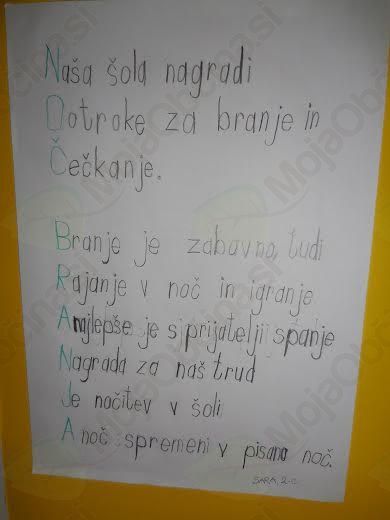 Naša šola nagradi
Ootroke za branje in
Čečkanje.
Branje je zabavna tudi
Rajanje v noč in igranje
Anjlepše je s prijatelji spanje
Nagrada za naš trud
Je nočitev v šoli
A noč spremeni v pisano noč.
SARA, 2.c
MojaObčina.si